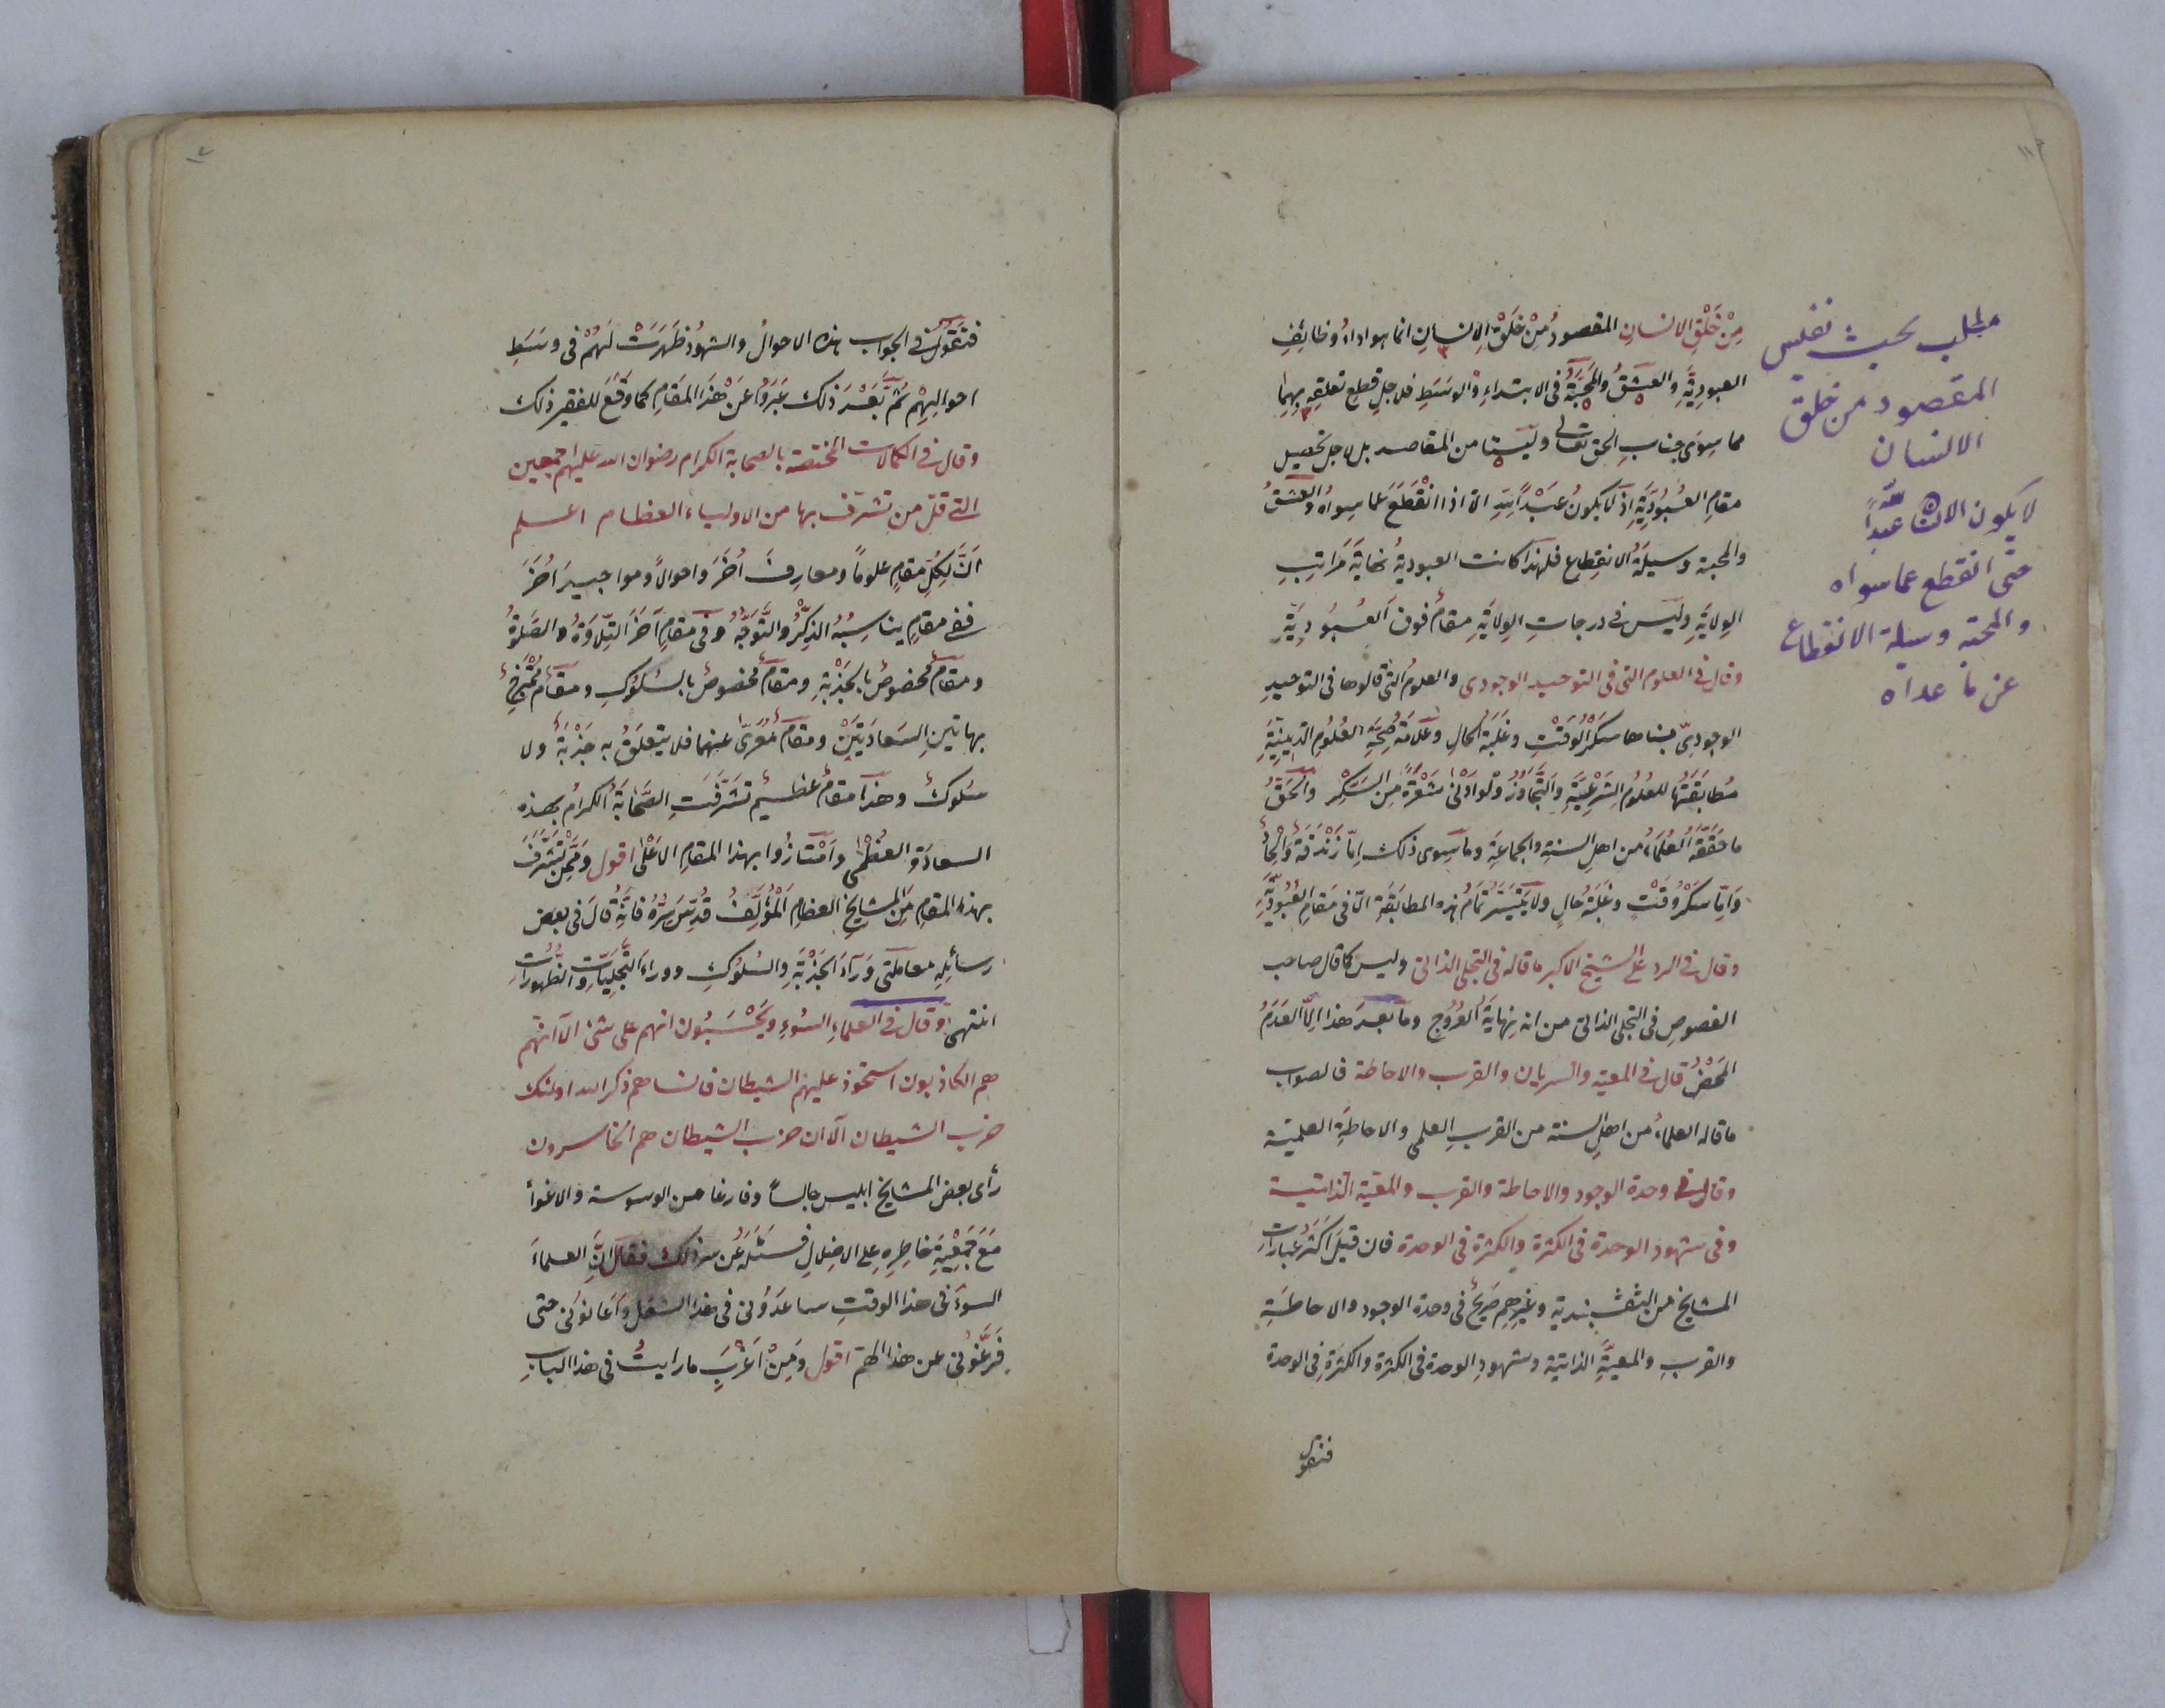 مِنْ خَلْقِ الانسانِ المقصودُ مِنْ خَلْقِ الانسانِ انما هو اداءُ وظائفِ
العبوديَّةِ والعشقُ والمَحَبَّةُ فى الابتداءِ والوسَطِ فلاجلِ قطعِ تعلقِهِ بهما
مما سِوَى جنابِ الحق تعالى وليستا من المقاصد بل لاجل تحصيل
مقامِ العُبُودِيَّةِ اذ لا يكونُ عَبْدًا للهِ الا اذا انْقَطَعَ عما سِواهُ والعشقُ
والمحبة وسيلَةُ الانقطاع فلهذا كانت العبوديةُ نهايَةَ مَرَاتِبِ
الوِلايَةِ وليس فى درجاتِ الوِلايَةِ مقامٌ فوق العُبُودِيَّةِ
وقال فى العلوم التى فى التوحيد الوجودى والعلومُ التى قالوها فى التوحيدِ
الوجودِىّ مبناها سُكْرُ الوَقْتِ وغَلَبَةُ الحالِ وعَلَامَةُ صِحَّةِ العُلُومِ الدِّينِيَّةِ
مُطابَقَتُها للعُلُومِ الشَّرْعِيَّةِ والتَّجاوُزُ ولو اَدْنى شَعْرَةً مِنَ السُّكْرِ والحَقُّ
ما حَقَّقَهُ العُلَماءُ من اهل السنةِ والجماعَةِ وما سِوى ذلك اِمّا زَنْدَقَةٌ واِلْحادٌ
وَاِمّا سُكْرُ وَقْتٍ وغَلَبَةُ حالٍ ولا يَتَيَسَّرُ تمامُ هذه المطابَقَةِ الّا فى مَقامِ العُبُودِيَّةِ
وقال فى الرد على الشيخ الاكبر ما قاله فى التجلى الذاتى وليس كما قال صاحب
الفصوصِ فى التجلى الذاتى من انه نِهايَةُ العُرُوجِ وما بعدَ هذا اِلّا العَدَمُ
المَحْضُ قال فى المعية والسريان والقرب والاحاطة فالصواب
ما قاله العلماءُ من اهلِ السنة من القربِ العلمى والاحاطَةِ العلميّة
وقال فى وحدة الوجود والاحاطة والقرب والمعيّة الذاتية
وفى شهود الوحدة فى الكثرة والكثرة فى الوحدة فان قيلَ اَكْثَرُ عِباراتِ
المشايخ من النقشبندية وغيرِهِم صَرِيحٌ فى وحدة الوجود والاحاطَةِ
والقربِ والمعيَّةِ الذاتية وشهودِ الوحدة فى الكثرة والكثرةِ فى الوحدة
فنقول
مطلب بحث نفيس
المقصود من خلق
الانسان
لا يكون الانسان عبدًا لله
حتى انقطع عما سواه
والمحبة وسيلة الانقطاع
عن ما عداه
فنقولُ فى الجواب هذه الاحوالُ والشهودُ ظَهَرَتْ لَهُمْ فى وسَطِ
احوالِهِمْ ثُمَّ بَعْدَ ذلك عَبَرُوا عَنْ هٰذا المَقامِ كما وَقَعَ للفقير ذلك
وقال فى الكمالات المختصة بالصحابة الكرام رضوان الله عليهم اجمعين
التى قلّ من تشرّف بها من الاولياء العظام اعلم
اَنَّ لِكُلِّ مَقامٍ علومًا ومعارِفَ اُخَرَ واحوالًا ومواجيدَ اُخَرَ
ففى مقامٍ يناسِبُهُ الذِّكْرُ والتَّوَجُّهُ وفى مقامٍ آخَرَ التِّلاوَةُ والصَّلوةُ
ومقامٌ مخصوصٌ بالجَذْبَةِ ومقامٌ مخصوصٌ بالسُّلُوكِ ومقامٌ مُمْتَزِجٌ
بهاتينِ السَّعادَتَيْنِ ومقامٌ مُعَرّىً عنهما فلا يتعلَّقُ به جَذْبَةٌ ولا
سُلوكٌ وهذا مقامٌ عظيمٌ تَشَرَّفَتِ الصَّحابَةُ الكرامُ بهذه
السعادَةِ العظْمٰى وامْتازُوا بهذا المقامِ الاَعْلٰى اقول ومِمَّنْ تَشَرَّفَ
بهذا المقامِ مِنَ المَشايِخِ العظامِ المُؤَلِّفُ قُدِّسَ سِرُّهُ فانَّهُ قالَ فى بعض
رسائِلِهِ معاملتى وَرَآءَ الجَذْبَةِ والسُلُوكِ ووراءَ التَّجَلِيّاتِ والظُّهُوراتِ
انتهى وقال فى العلماءِ السُوءِ ويَحْسَبُون انهم على شئ الا انهم
هم الكاذبون استحوذ عليهم الشيطان فانساهم ذكر الله اولئك
حزب الشيطان الا ان حزب الشيطان هم الخاسرون
رأى بعض المشايخ ابليس جالسًا وفارغا من الوسوسة والاغواء
مَعَ جَمْعِيَّةِ خاطِرِهِ على الاضلالِ فسَئَلَهُ عَن سر ذلك فقال اِنَّ العلماءَ
السوءَ فى هذا الوقتِ ساعَدُونى فى هذا الشغل وَاَعانُونى حتى
فَرَّغُونى عن هذا الهمّ اقول ومِنْ اَغْرَبِ ما رايتُ فى هذا البابِ